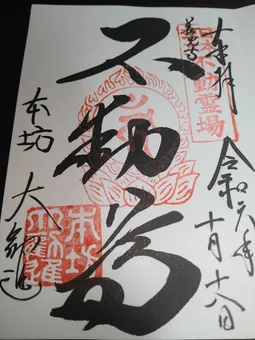 奉拝
令和六年
十月十八日
善光寺
不動霊場
不動尊
本坊
大勧進
本坊
大勧進